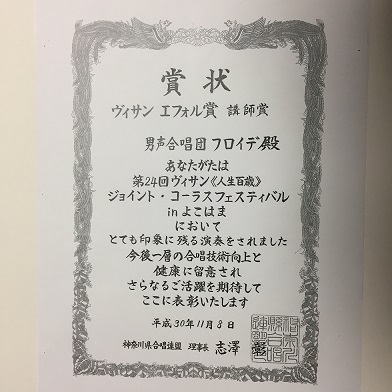 賞状
ヴィサン エフォル賞 講師賞
男声合唱団 フロイデ殿
あなたがたは
第24回ヴィサン《人生百歳》
ジョイント・コーラスフェスティバル
inよこはま
において
とても印象に残る演奏をされました
今後一層の合唱技術向上と
健康に留意され
さらなるご活躍を期待して
ここに表彰いたします
平成30年11月8日
神奈川県合唱連盟 理事長 志澤 彰